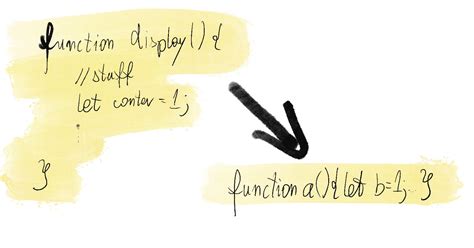 function display() {
//stuff
let contor = 1;
:
}
function a(){ let b=1; }